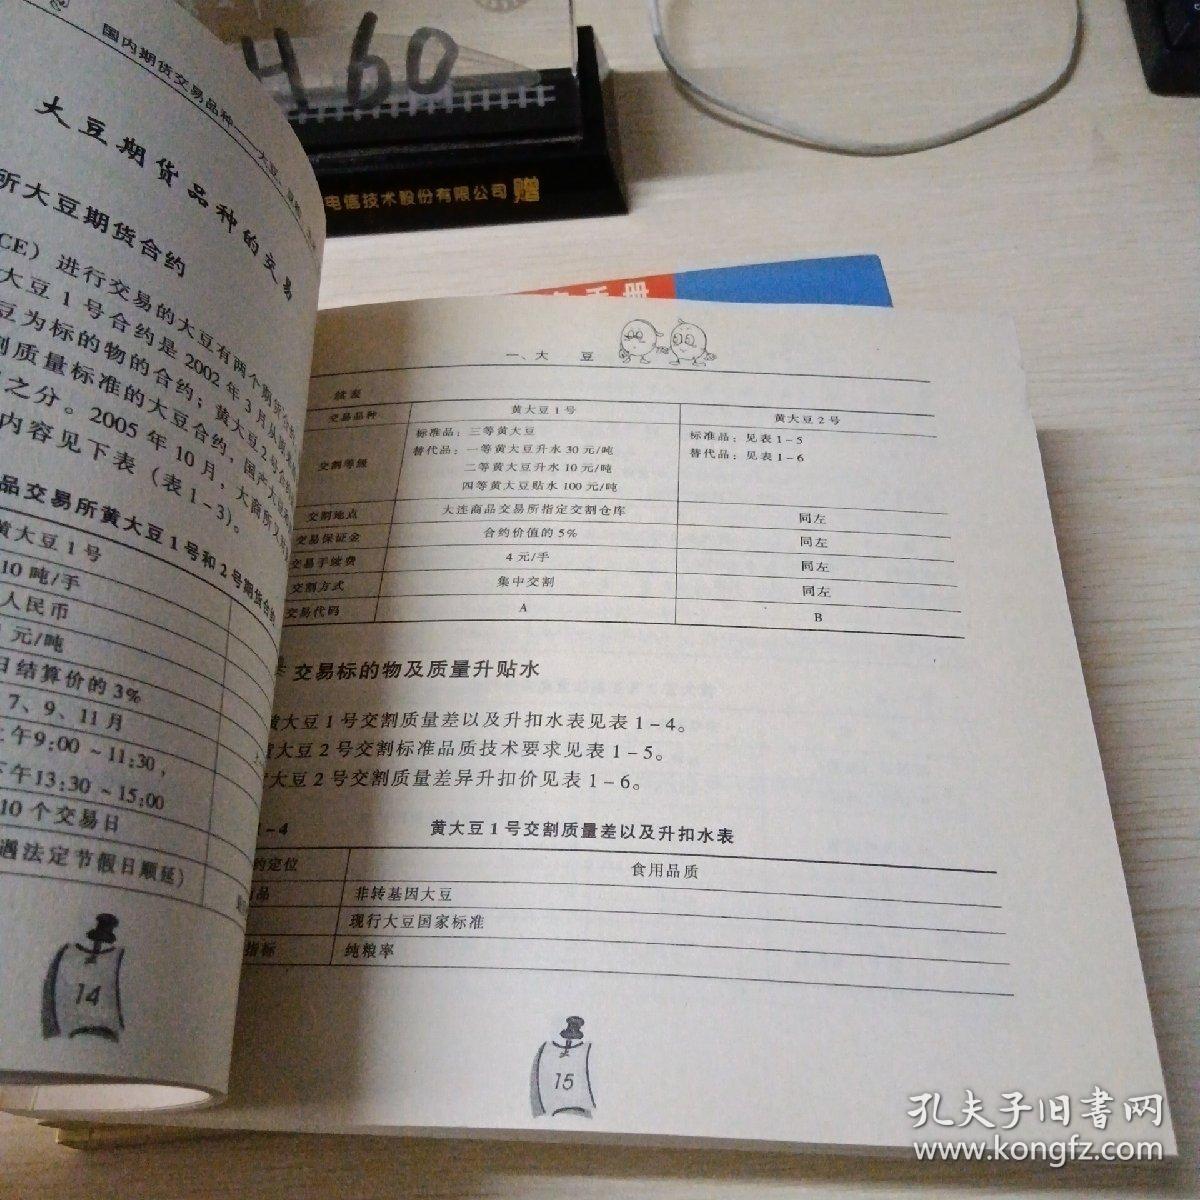 460
电信技术股份有限公司 赠
手册
国内期货交易品种——大豆、豆粕
大豆期货品种的交易
所大豆期货合约
CE）进行交易的大豆有两个期货合约
大豆1号合约是2002年3月从
豆为标的物的合约；黄大豆2号合约
割质量标准的大豆合约，国产大豆
之分。2005年10月，大商所又
内容见下表（表1－3）。
品交易所黄大豆1号和2号期货合约
黄大豆1号
10吨/手
人民币
元/吨
日结算价的3%
7、9、11月
上午9:00～11:30，
下午13:30～15:00
10个交易日
遇法定节假日顺延）
14
一、大 豆
续表
交易品种 黄大豆1号 黄大豆2号
交割等级 标准品：三等黄大豆 标准品：见表1－5
替代品：一等黄大豆升水30元/吨 替代品：见表1－6
二等黄大豆升水10元/吨
四等黄大豆贴水100元/吨
交割地点 大连商品交易所指定交割仓库 同左
交易保证金 合约价值的5% 同左
交易手续费 4元/手 同左
交割方式 集中交割 同左
交易代码 A B
交易标的物及质量升贴水
黄大豆1号交割质量差以及升扣水表见表1－4。
黄大豆2号交割标准品质技术要求见表1－5。
黄大豆2号交割质量差异升扣价见表1－6。
1－4 黄大豆1号交割质量差以及升扣水表
约定位 食用品质
品 非转基因大豆
现行大豆国家标准
指标 纯粮率
15
孔夫子旧书网
www.kongfz.com